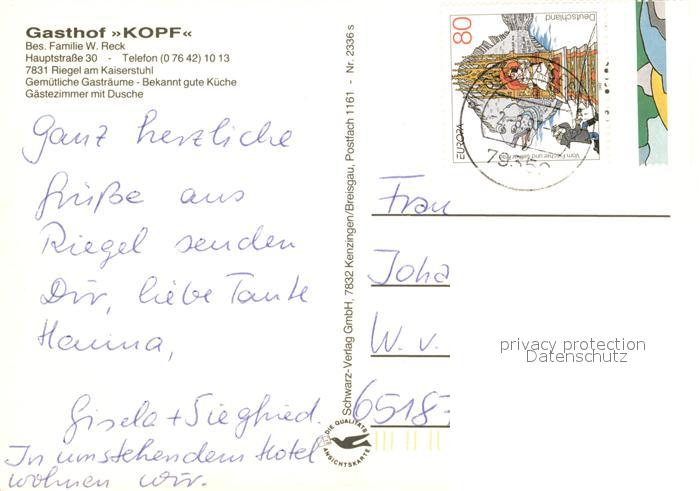 Gasthof »KOPF«
Bes. Familie W. Reck
Hauptstraße 30 - Telefon (0 76 42) 10 13
7831 Riegel am Kaiserstuhl
Gemütliche Gasträume - Bekannt gute Küche
Gästezimmer mit Dusche
Ganz herzliche
Grüße aus
Riegel senden
Dir, liebe Tante
Hanna,
Gisela + Siegfried.
In umstehendem Hotel
wohnen wir.
Schwarz-Verlag GmbH, 7832 Kenzingen/Breisgau, Postfach 1161 - Nr. 2336 s
DIE QUALITÄTS
ANSICHTSKARTE
80
Deutschland
EUROPA
Vom Fischer und seiner Frau
Frau
Joha
W. v.
6518-
privacy protection
Datenschutz